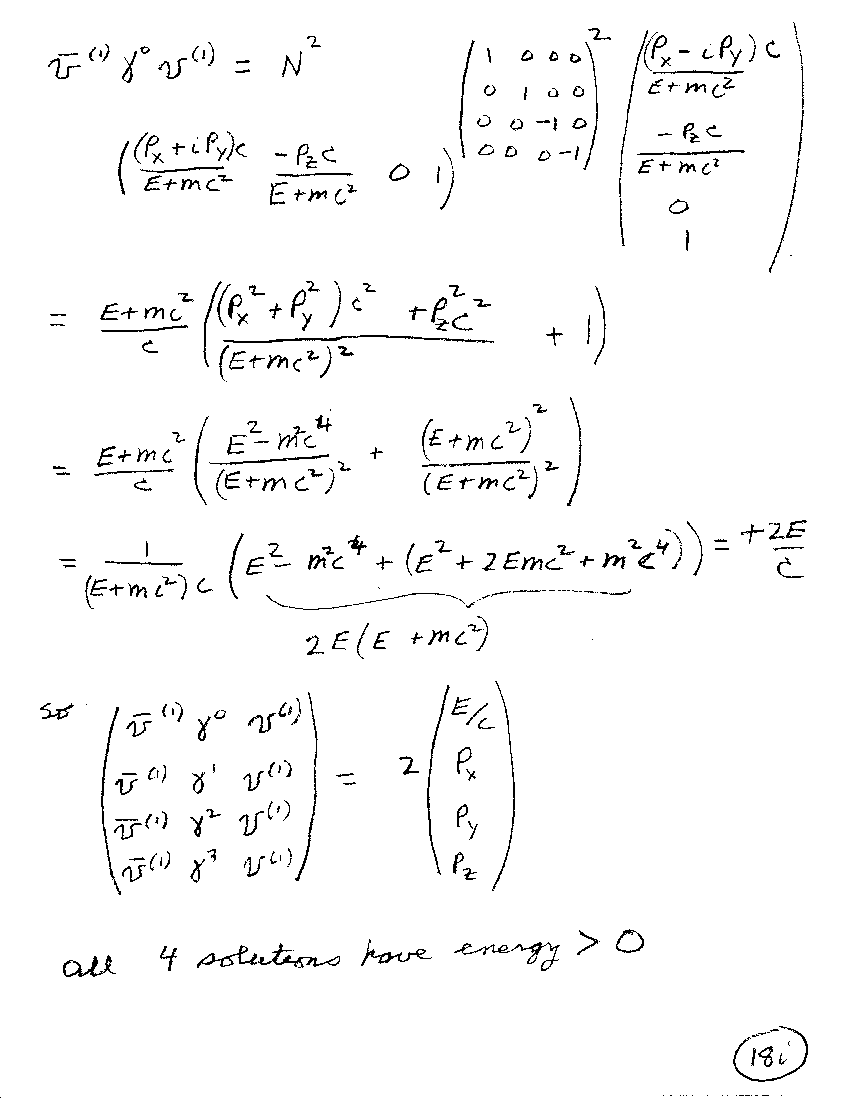 v̄⁽¹⁾ γ⁰ v⁽¹⁾ = N²
((Pₓ + iP_y)c/(E+mc²)  -P_z c/(E+mc²)  0  1) (1 0 0 0; 0 1 0 0; 0 0 -1 0; 0 0 0 -1)² ((Pₓ - iP_y)c/(E+mc²); -P_z c/(E+mc²); 0; 1)
= (E+mc²)/c (((Pₓ² + P_y²)c² + P_z²c²)/(E+mc²)² + 1)
= (E+mc²)/c ((E² - m²c⁴)/(E+mc²)² + (E+mc²)²/(E+mc²)²)
= 1/((E+mc²)c) (E² - m²c⁴ + (E² + 2Emc² + m²c⁴)) = +2E/c
2E(E + mc²)
so (v̄⁽¹⁾ γ⁰ v⁽¹⁾; v̄⁽¹⁾ γ¹ v⁽¹⁾; v̄⁽¹⁾ γ² v⁽¹⁾; v̄⁽¹⁾ γ³ v⁽¹⁾) = 2 (E/c; Pₓ; P_y; P_z)
all 4 solutions have energy > 0
18i